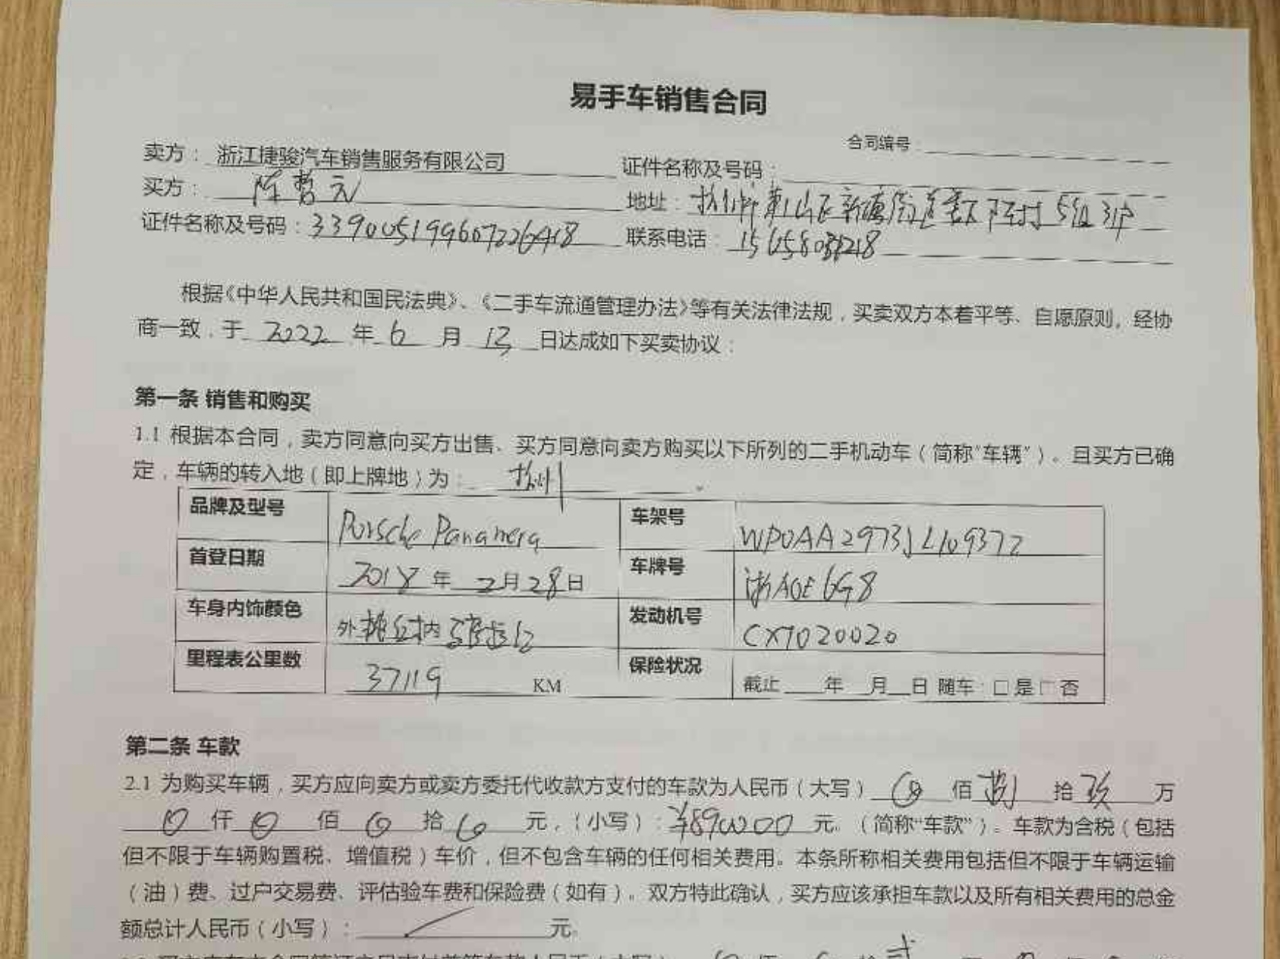 易手车销售合同
合同编号:
卖方: 浙江捷骏汽车销售服务有限公司 证件名称及号码:
买方: 陈哲元 地址: 杭州市萧山区新塘街道 村5组3户
证件名称及号码: 339005199607226418 联系电话:
根据《中华人民共和国民法典》、《二手车流通管理办法》等有关法律法规,买卖双方本着平等、自愿原则,经协
商一致,于 2022 年 6 月 13 日达成如下买卖协议:
第一条 销售和购买
1.1 根据本合同,卖方同意向买方出售、买方同意向卖方购买以下所列的二手机动车(简称“车辆”)。且买方已确
定,车辆的转入地(即上牌地)为: 杭州
品牌及型号 Porsche Panamera 车架号 WP0AA2973JL109372
首登日期 2018 年 2月 28 日 车牌号 浙A0E6G8
车身内饰颜色 外 红 内 红 发动机号 CXT020020
里程表公里数 37119 KM 保险状况 截止 年 月 日 随车:□是□否
第二条 车款
2.1 为购买车辆,买方应向卖方或卖方委托代收款方支付的车款为人民币(大写) 佰 捌 拾 玖 万
0 仟 0 佰 0 拾 0 元,(小写):¥890000 元。(简称“车款”)。车款为含税(包括
但不限于车辆购置税、增值税)车价,但不包含车辆的任何相关费用。本条所称相关费用包括但不限于车辆运输
(油)费、过户交易费、评估验车费和保险费(如有)。双方特此确认,买方应该承担车款以及所有相关费用的总金
额总计人民币(小写): 元。